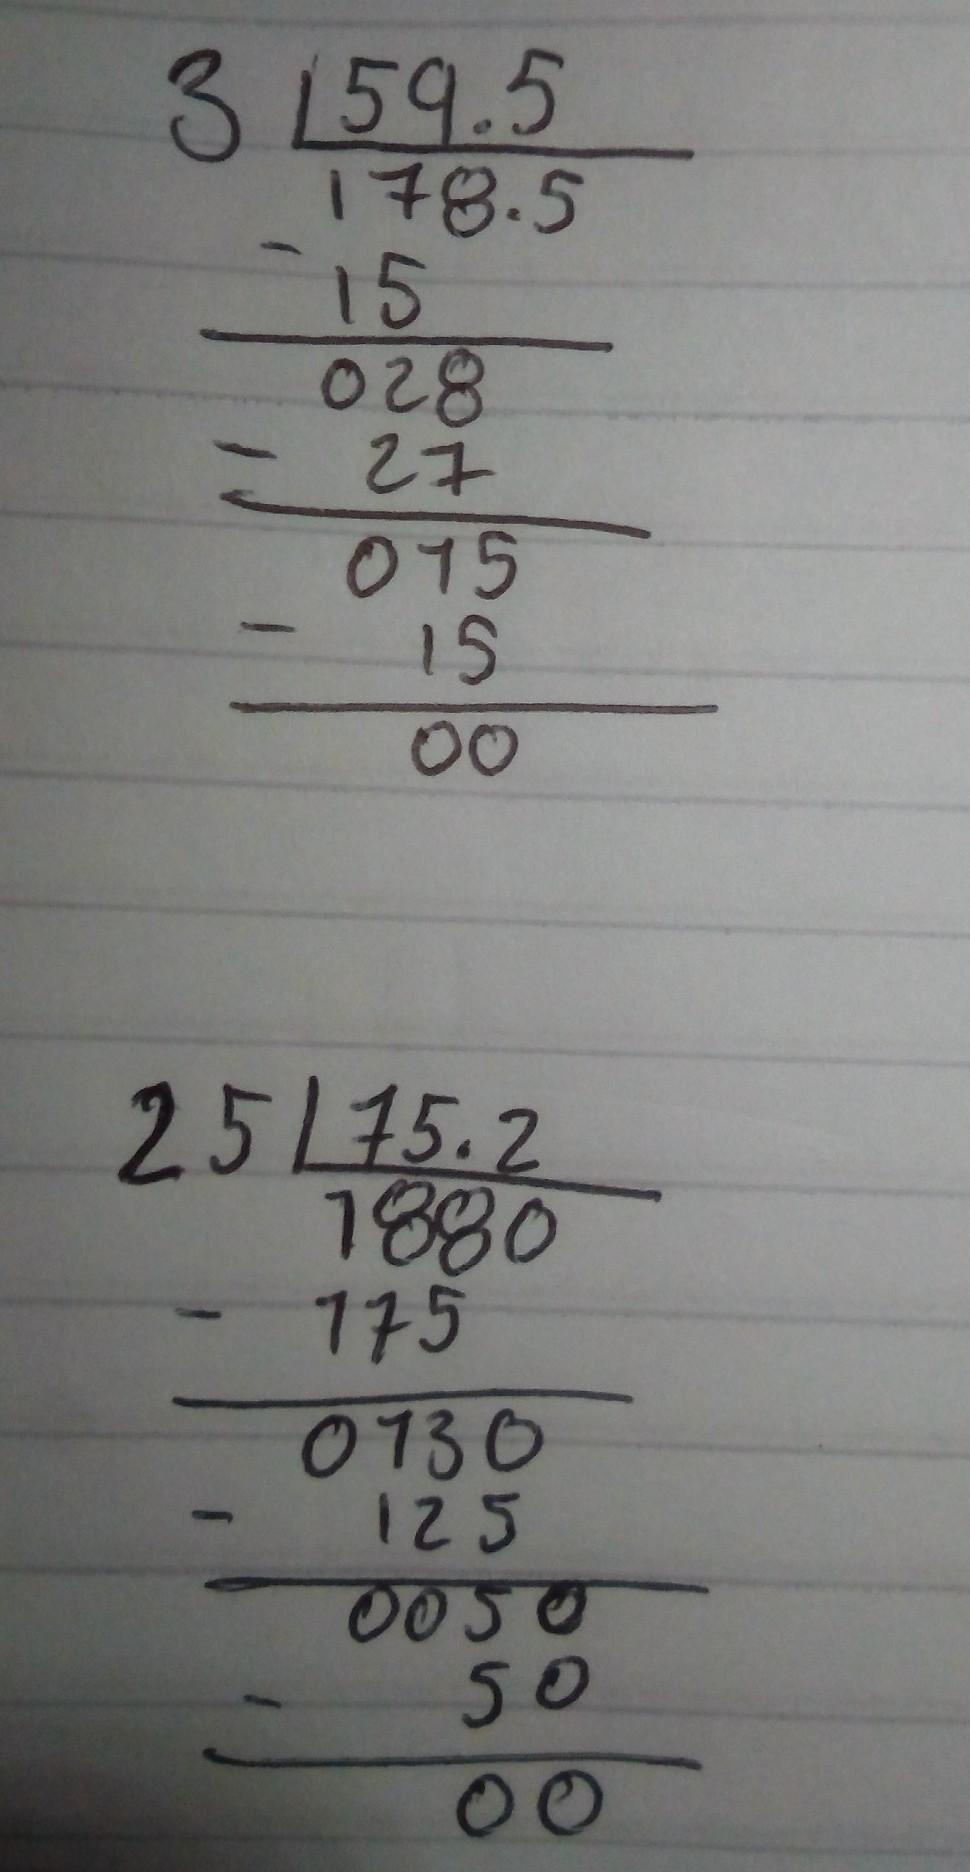 3 59.5
178.5
- 15
028
- 27
015
- 15
00
25 75.2
1880
- 175
0130
- 125
0050
- 50
00